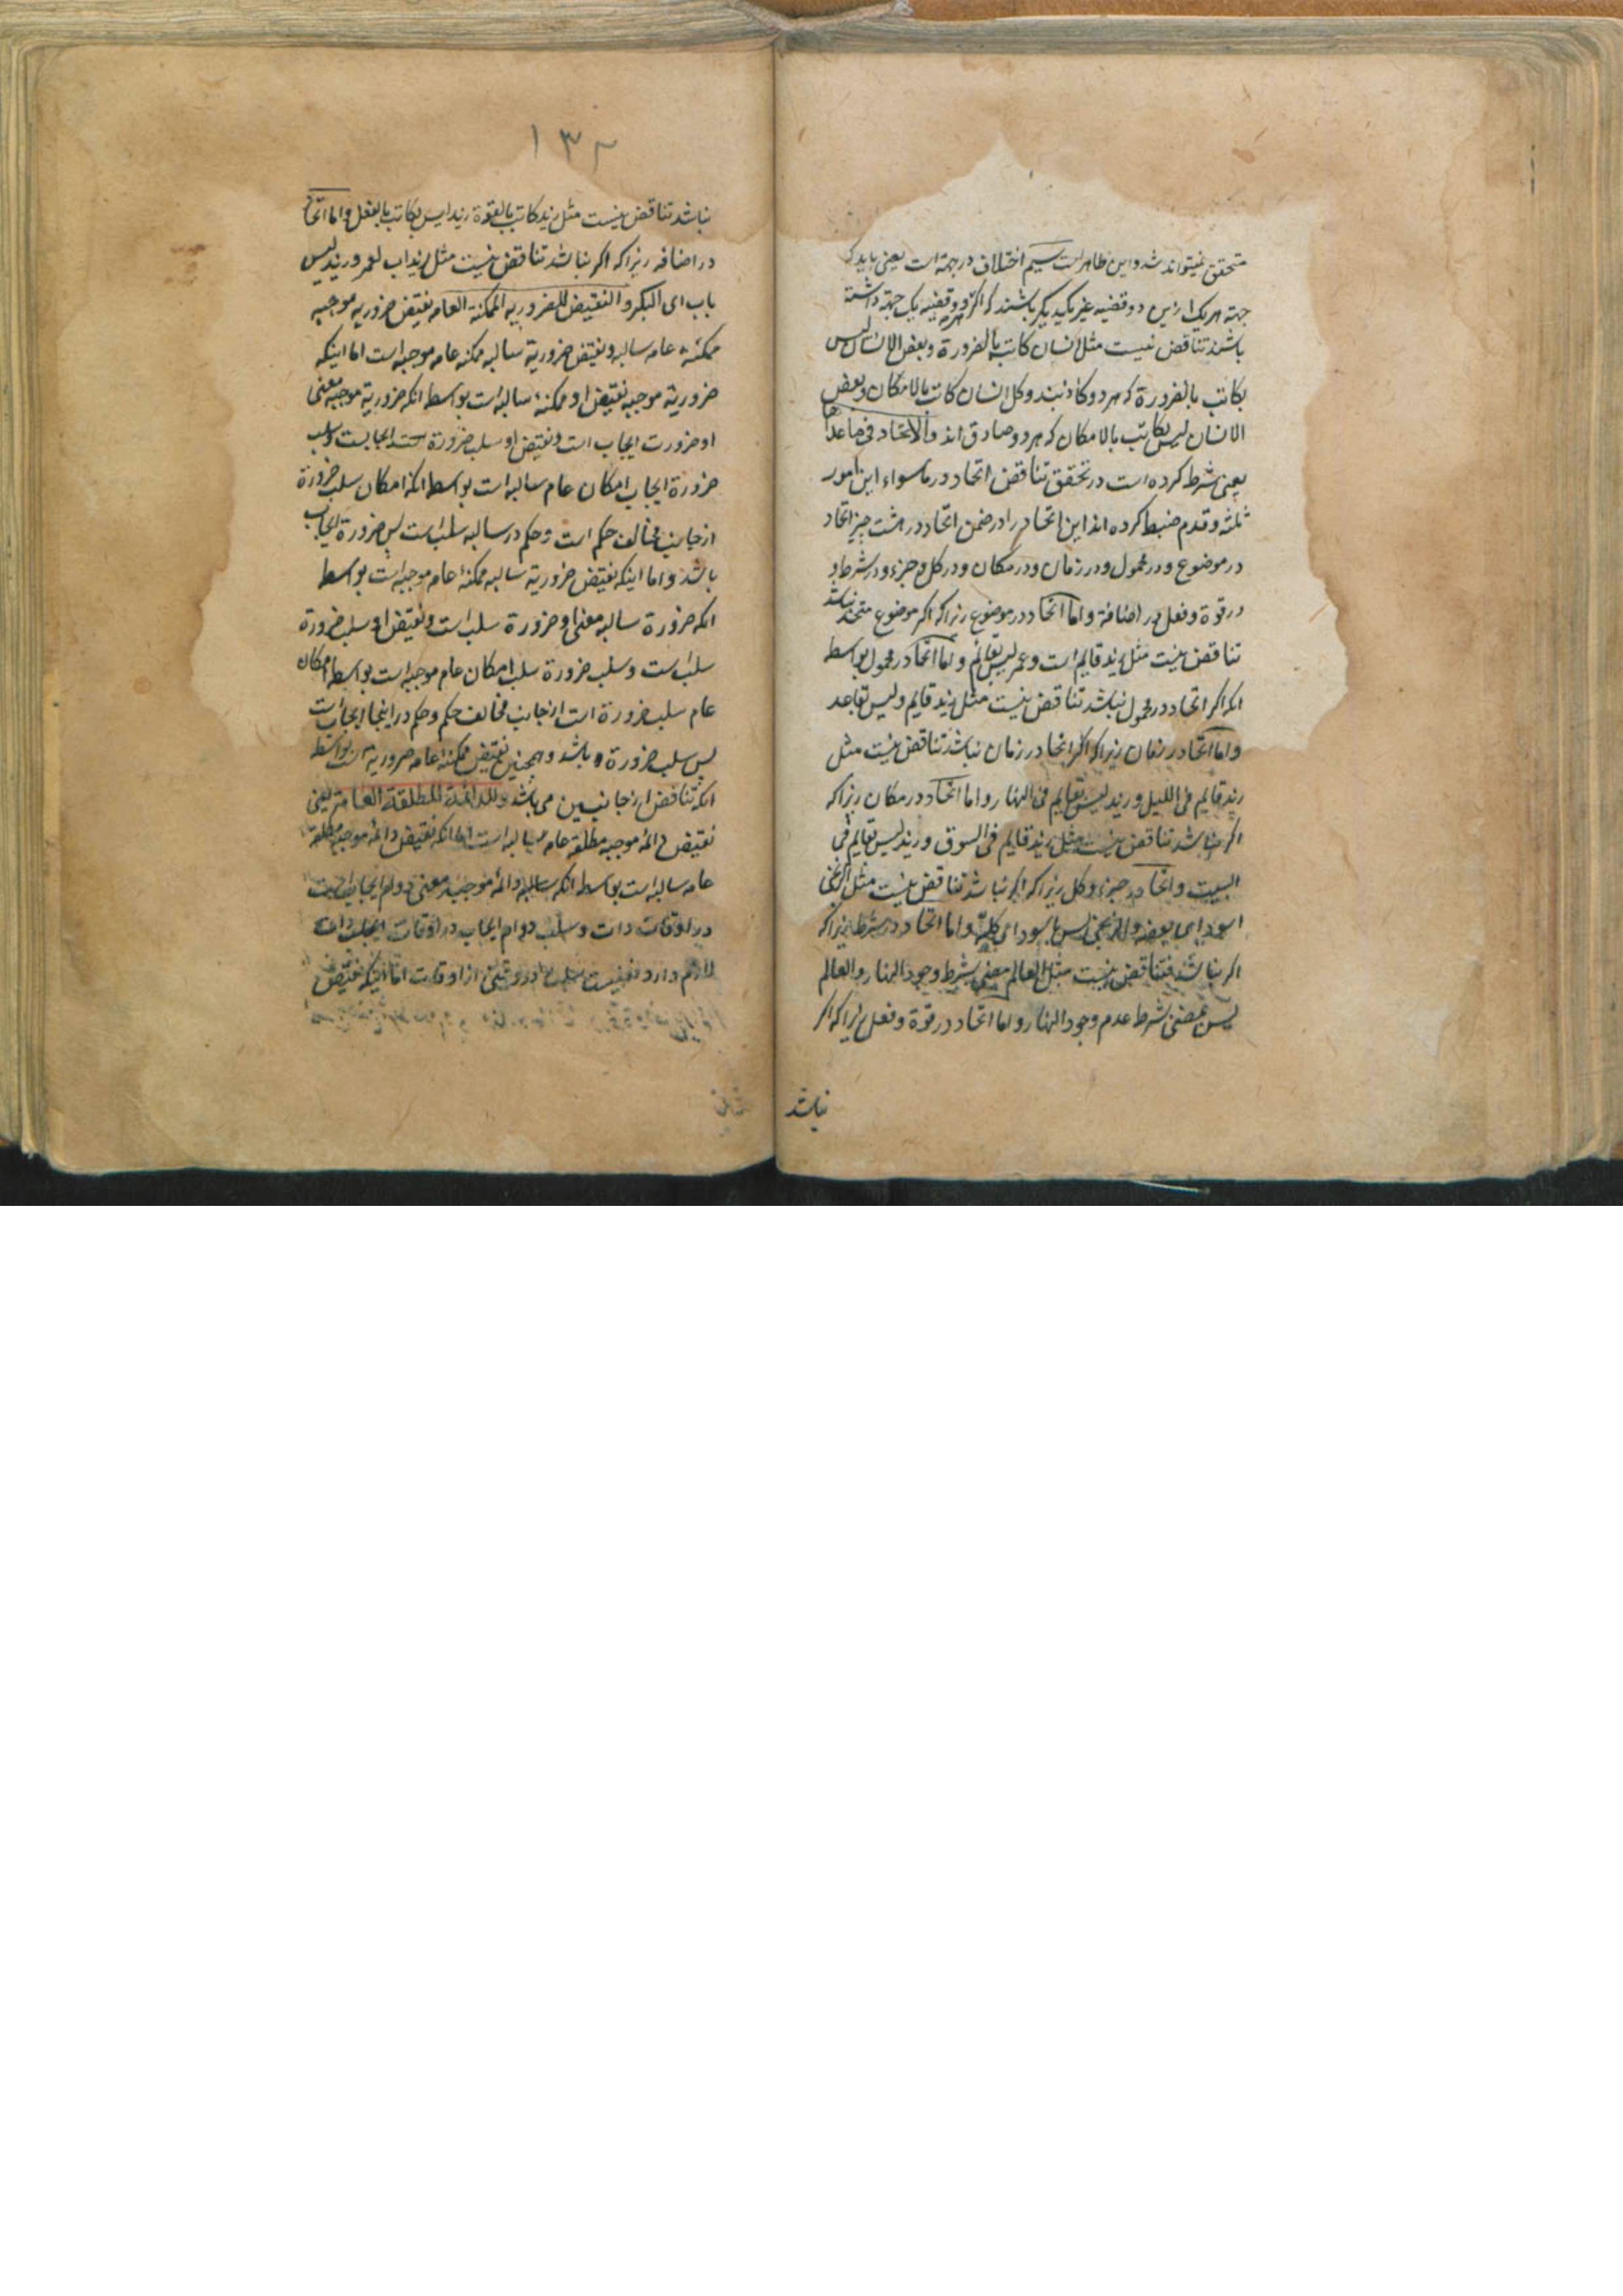 متحقق نمیتواند شد و این ظاهر است سیم اختلاف در جهة است یعنی باید که
جهة هر یک از این دو قضیه غیر یکدیگر باشند که اگر هر دو قضیه یک جهة داشته
باشند تناقض نیست مثل کل انسان کاتب بالضرورة و بعض الانسان لیس
بکاتب بالضرورة که هر دو کاذبند و کل انسان کاتب بالامکان و بعض
الانسان لیس بکاتب بالامکان که هر دو صادق اند والاتحاد فی ما عداها
یعنی شرط کرده است در تحقق تناقض اتحاد در ما سواء این امور
ثلثه و قدم ضبط کرده اند این اتحاد را در ضمن اتحاد در هشت چیز اتحاد
در موضوع و در محمول و در زمان و در مکان و در کل و جزء و در شرط و
در قوة و فعل و در اضافة و اما اتحاد در موضوع زیرا که اگر موضوع متحد نباشد
تناقض نیست مثل زید قایم است و عمر لیس بقایم و اما اتحاد در محمول بواسطه
انکه اگر اتحاد در محمول نباشد تناقض نیست مثل زید قایم و لیس بقاعد
و اما اتحاد در زمان زیرا که اگر اتحاد در زمان نباشد تناقض نیست مثل
زید قایم فی اللیل و زید لیس بقایم فی النهار و اما اتحاد در مکان زیرا که
اگر نباشد تناقض نیست مثل زید قایم فی السوق و زید لیس بقایم فی
البیت و اتحاد در جزء و کل زیرا که اگر نباشد تناقض نیست مثل الزنجی
اسود ای بعضه و الزنجی لیس باسود ای کله و اما اتحاد در شرط زیرا که
اگر نباشد تناقض نیست مثل العالم مضئ بشرط وجود النهار و العالم
لیس بمضئ بشرط عدم وجود النهار و اما اتحاد در قوة و فعل زیرا که اگر
نباشد
۱۳۲
نباشد تناقض نیست مثل زید کاتب بالقوة زید لیس بکاتب بالفعل و اما اتحاد
در اضافه زیرا که اگر نباشد تناقض نیست مثل زید اب لعمر و زید لیس
باب ای البکر و النقیض للضروریه الممکنة العامه نقیض ضروریه موجبه
ممکنة عامه سالبه و نقیض ضروریة سالبه ممکنه عامه موجبه است اما اینکه
ضروریة موجبه نقیض او ممکنه سالبه است بواسطه انکه ضروریة موجبه معنی
او ضرورت ایجاب است و نقیض او سلب ضرورة ایجابست و سلب
ضرورة ایجاب امکان عام سالبه است بواسطه انکه امکان سلب ضرورة
از جانب مخالف حکم است و حکم در سالبه سلب است پس ضرورة ایجاب
باشد و اما اینکه نقیض ضروریة سالبه ممکنة عام موجبه است بواسطه
انکه ضرورة سالبه معنی او ضرورة سلب است و نقیض او سلب ضرورة
سلب است و سلب ضرورة سلب امکان عام موجبه است بواسطه امکان
عام سلب ضرورة است از جانب مخالف حکم و حکم در اینجا ایجاب است
پس سلب ضرورة باشد و همچنین نقیض ممکنة عامه ضروریة است بواسطه
انکه تناقض از جانبین می باشد و للدائمة المطلقة العامة یعنی
نقیض دائمه موجبه مطلقه عامه سالبه است اما انکه نقیض دائمه موجبه مطلقه
عامه سالبه است بواسطه انکه دائمه موجبه معنی دوام ایجاب است
در اوقات ذات و سلب دوام ایجاب در اوقات ذات
لازم دارد سلب در وقتی از اوقات اما اینکه نقیض